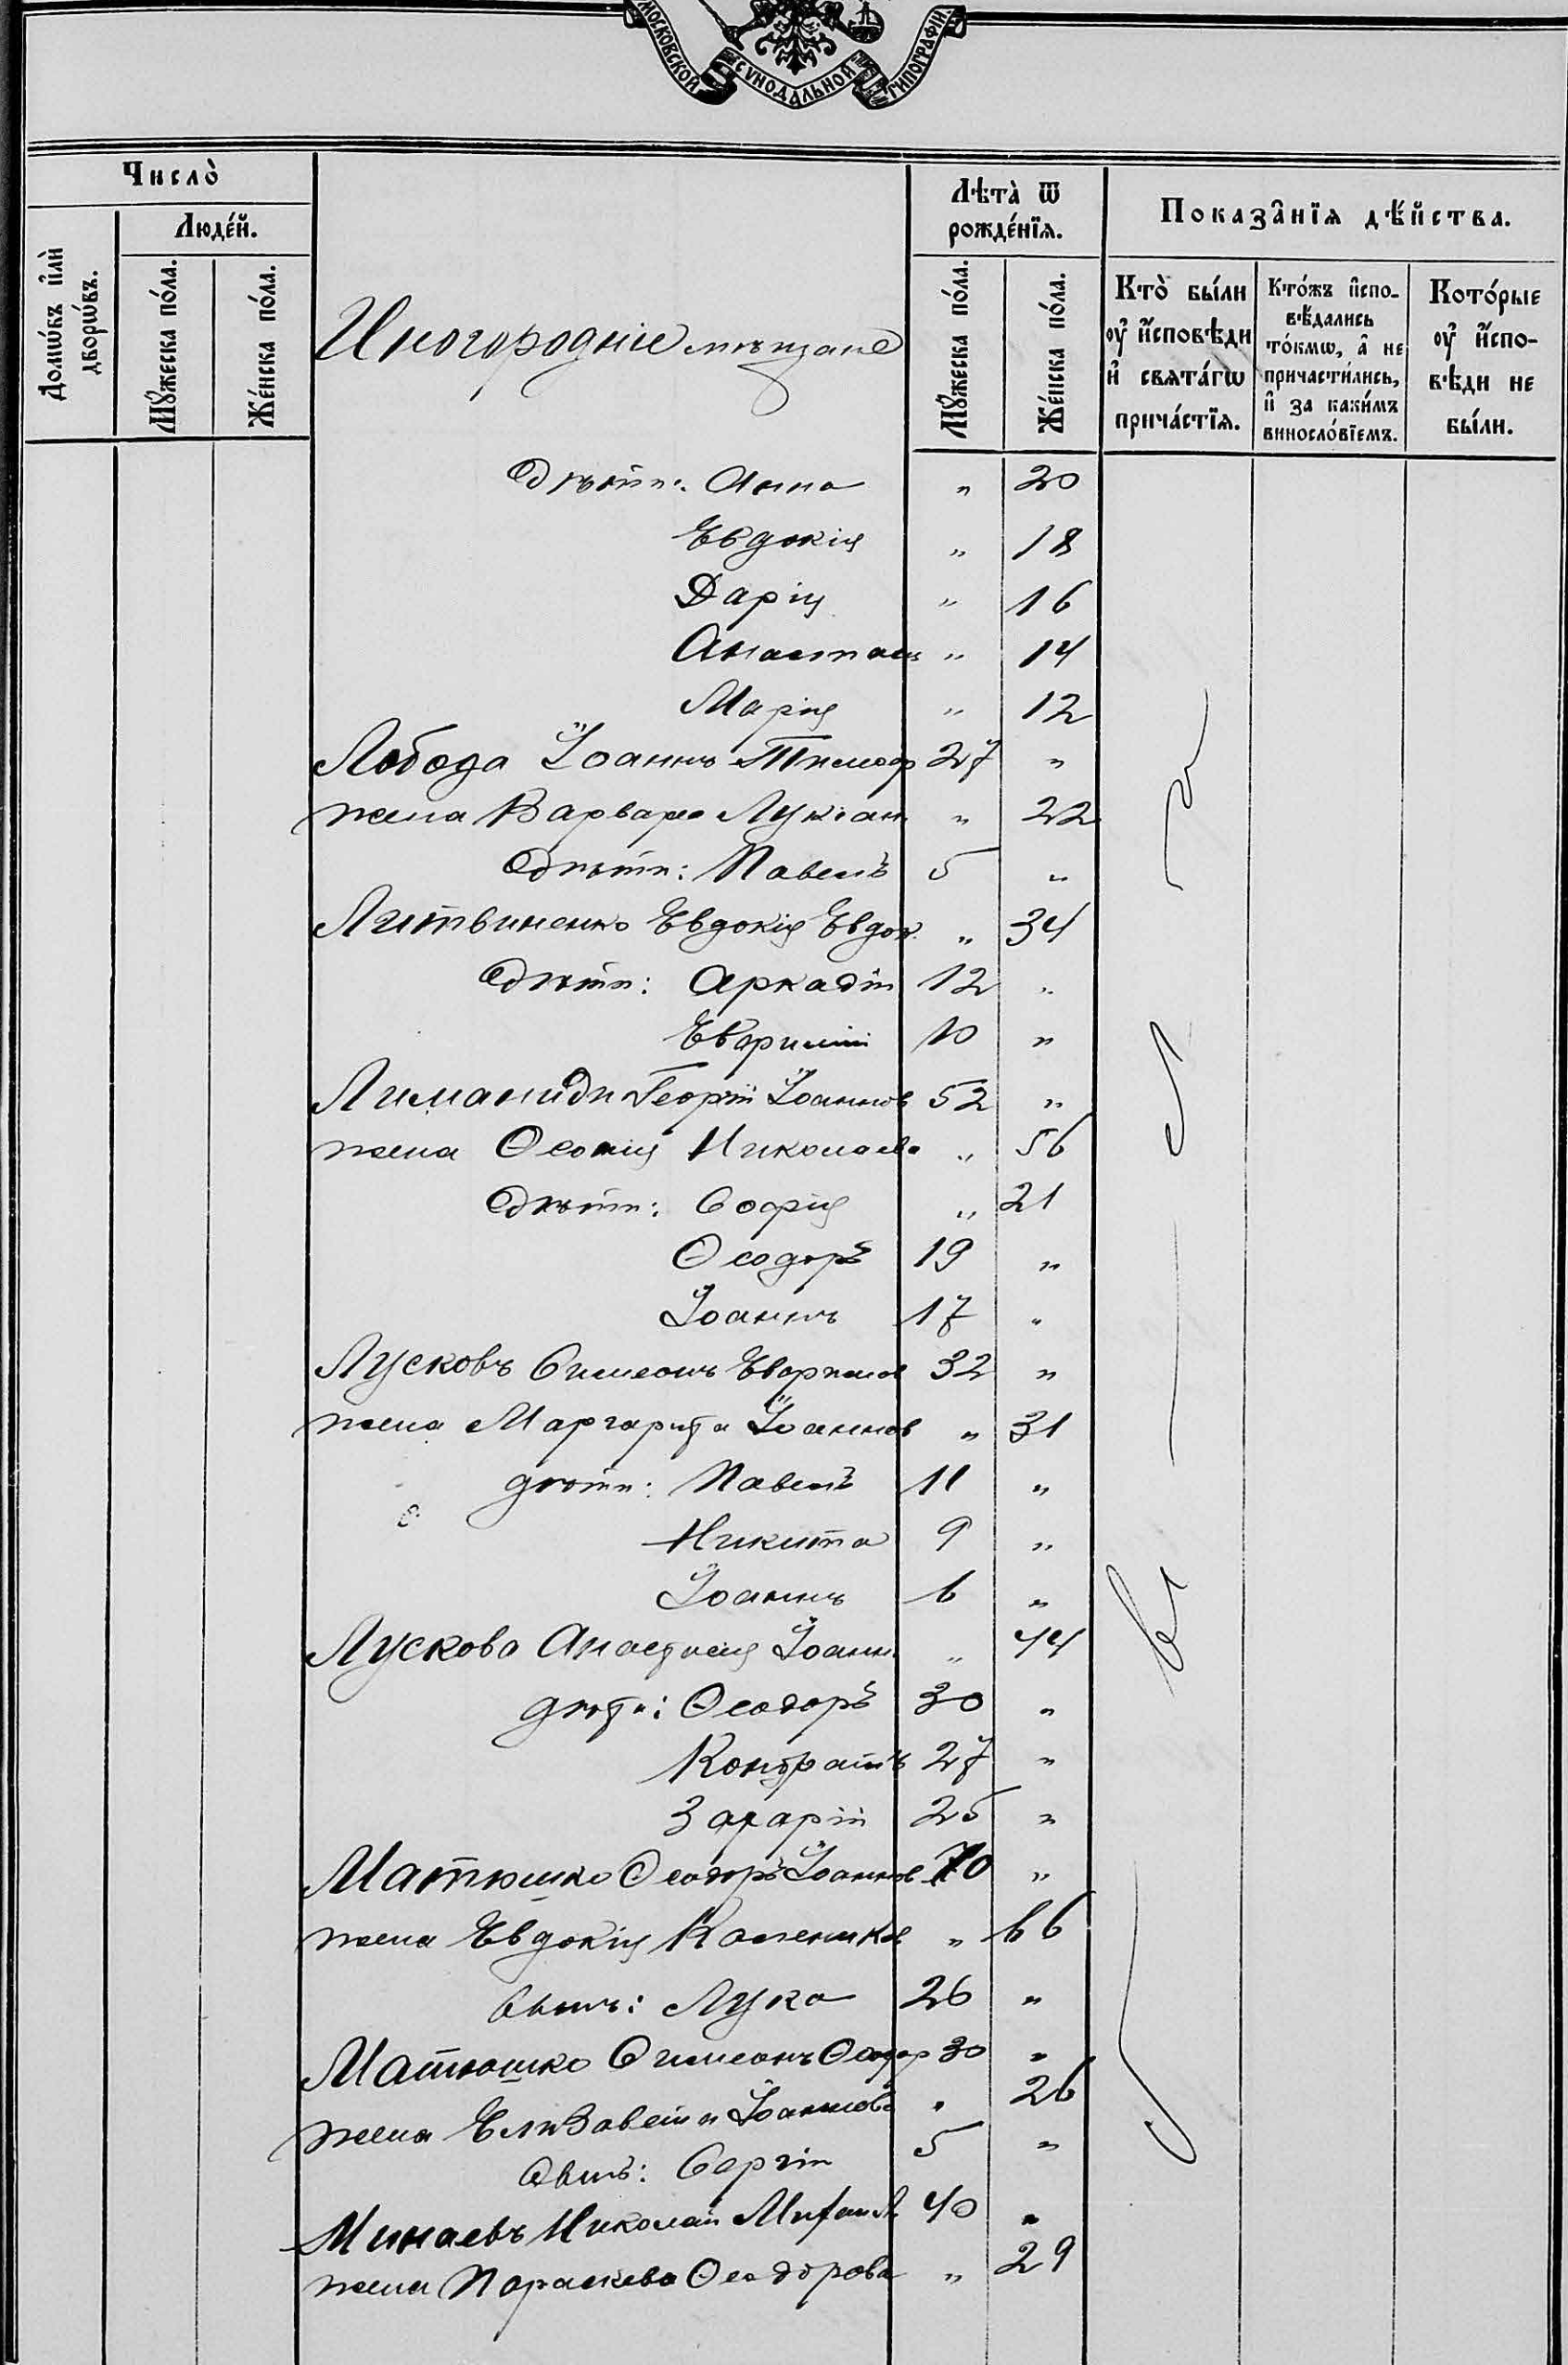 МОСКОВСКОЙ СѴНОДАЛЬНОЙ ТИПОГРАФІИ.
Число̀
Люде́й.
Домѡ́въ и҆лѝ дворѡ́въ.
Мꙋ́жеска по́ла.
Же́нска по́ла.
Иногородніе мѣщане
Лѣта̀ ѿ рожде́нїѧ.
Мꙋ́жеска по́ла.
Же́нска по́ла.
Показа̑нїѧ дѣ́йства.
Кто̀ бы́ли ᲂу҆ и҆́сповѣди и҆ свѧта́гѡ прича́стїѧ.
Кто́жъ и҆спо-вѣ́дались то́кмѡ, а҆ не причасти́лись, и҆ за каки́мъ виносло́вїемъ.
Кото́рые ᲂу҆ и҆́спо-вѣди не бы́ли.
дѣти: Анна " 20
Евдокія " 18
Дарія " 16
Анастасія " 14
Марія " 12
Лобода Іоаннъ Тимоф 27 "
жена Варвара Лукіан " 22
дѣти: Павелъ 5 "
Литвиненко Евдокія Евдок. " 34
дѣти: Аркадій 12 "
Евфимій 10 "
Лиманиди Георгій Іоаннов 52 "
жена Николаева " 56
дѣти: Софія " 21
Ѳеодоръ 19 "
Іоаннъ 17 "
Лусковъ Симеонъ Евфимов 32 "
жена Маргарита Іоаннов " 31
дѣти: Павелъ 11 "
Никита 9 "
Іоаннъ 6 "
Лускова Анастасія Іоанн. " 44
дѣти: Ѳеодоръ 30 "
Кондратъ 27 "
Захарій 25 "
Матюшко Ѳеодоръ Іоаннов 70 "
жена Евдокія " 66
сынъ: Лука 26 "
Матюшко Симеонъ Ѳеодор 30 "
жена Елизавета Іоаннова " 26
сынъ: Сергій 5 "
Минаевъ Николай Михаил. 40 "
жена Параскева Ѳеодорова " 29